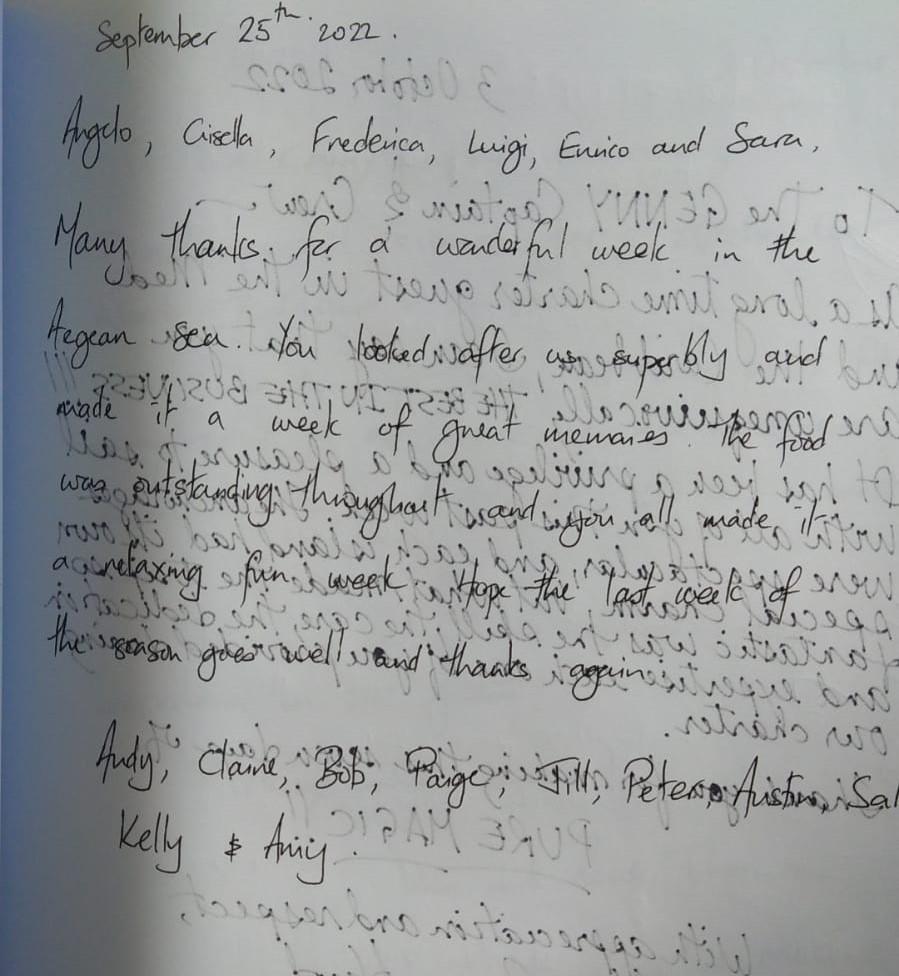 September 25th. 2022.
Angelo, Gisella, Frederica, Luigi, Enrico and Sara,
Many thanks for a wonderful week in the
Aegean sea. You looked after us superbly and
made it a week of great memories. The food
was outstanding throughout and you all made it
a relaxing fun week. Hope the last week of
the season goes well and thanks again.
Andy, Claire, Bob, Paige, Jill, Peter, Austin, Sal
Kelly & Amy.